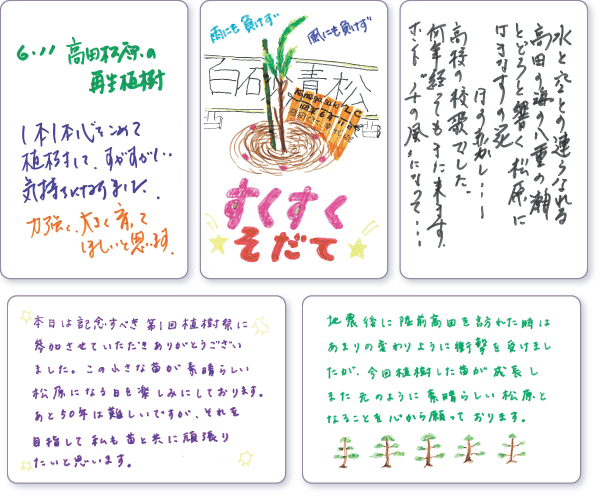 6.11 高田松原の
再生植樹
1本1本心をこめて
植樹して、すがすがしい
気持ちになりました。
力強く、大きく育って
ほしいと思います。
雨にも負けず
風にも負けず
白砂青松
すくすく
そだて
水と空との連らなれる
高田の海の八重の潮
とどろと響く松原に
はまなすの花
月の光かし・・・
高校の校歌でした。
何年経ってもまた来ます。
ホント！千の風になって・・・
本日は記念すべき第1回植樹祭に
参加させていただきありがとうござい
ました。この小さな苗が素晴らしい
松原になる日を楽しみにしております。
あと50年は難しいですが、それを
目指して私も苗と共に頑張り
たいと思います。
地震後に陸前高田を訪れた時は
あまりの変わりように衝撃を受けまし
たが、今回植樹した苗が成長し
また元のように素晴らしい松原と
なることを心から願っております。